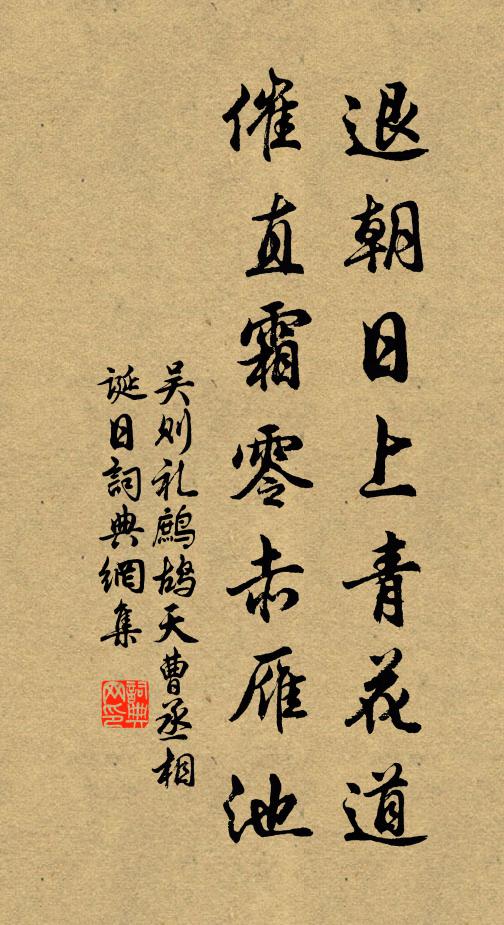 退朝日上青花道
催直霜零赤雁池
吴则礼鹧鸪天曹丞相
诞日詞典網集
詞典
网印